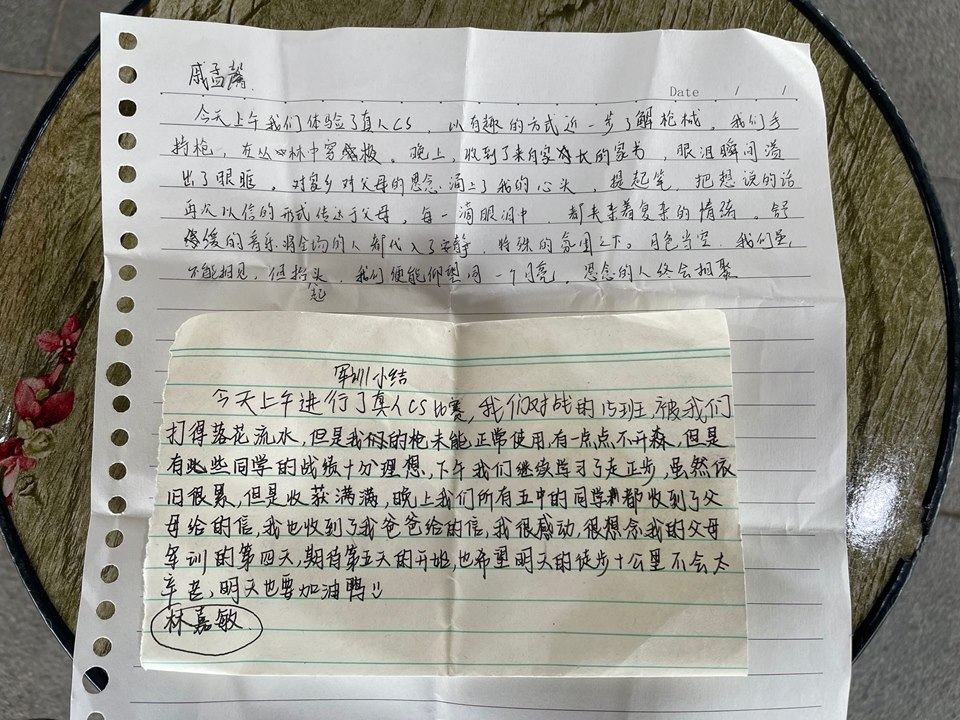 戚孟馨
Date / /
今天上午我们体验了真人CS 以有趣的方式近一步了解枪械。我们手
持枪,在丛林中穿梭。晚上,收到了来自家长的家书,眼泪瞬间溢
出了眼眶。对家乡对父母的思念涌上了我的心头,提起笔,把想说的话
再次以信的形式传达于父母,每一滴眼泪中,都夹杂着复杂的情绪。舒
缓的音乐将全场的人都代入了安静,特殊的氛围之下。月色当空,我们虽
不能相见,但抬起头,我们便能仰望同一个月亮,思念的人终会相聚
军训小结
今天上午进行了真人CS比赛,我们对战的15班被我们
打得落花流水,但是我们的枪未能正常使用,有一点点不开森,但是
有些同学的战绩十分理想,下午我们继续学习了走正步,虽然依
旧很累,但是收获满满,晚上我们所有五中的同学都收到了父
母给的信,我也收到了我爸爸给的信,我很感动,很想念我的父母
军训的第四天,期待第五天的开始,也希望明天的徒步十公里不会太
辛苦,明天也要加油鸭
林嘉敏